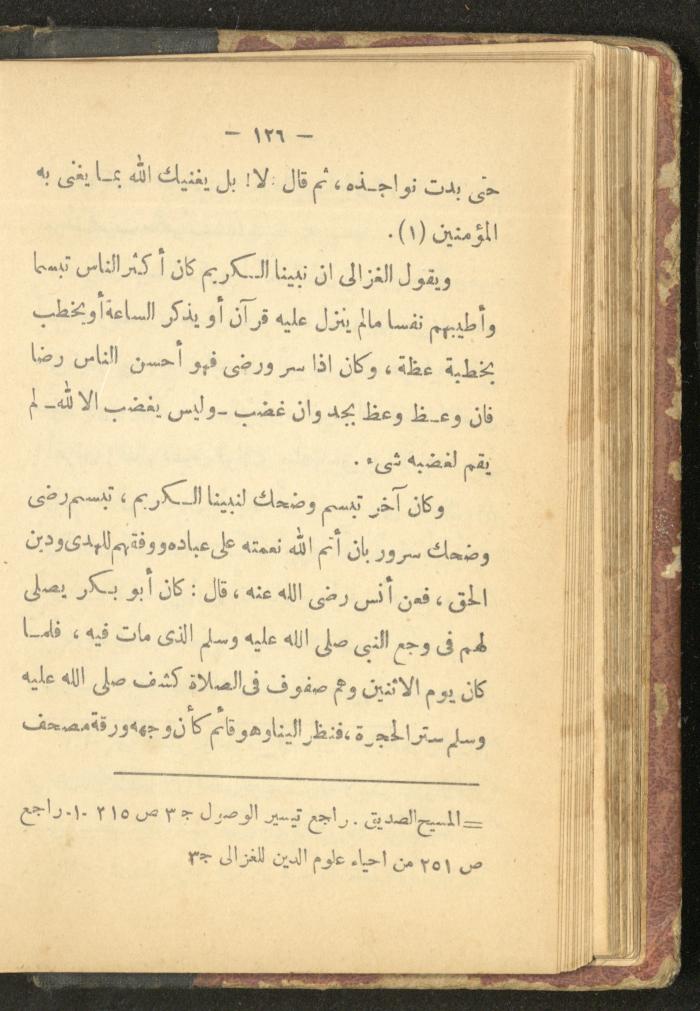 — ١٢٦ —
حتى بدت نواجـذه ، ثم قال : لا ! بل يغنيك الله بمـا يغنى به
المؤمنين (١) .
ويقول الغزالى ان نبينا الـكريم كان أكثر الناس تبسما
وأطيبهم نفسا مالم ينزل عليه قرآن أو يذكر الساعة أو يخطب
بخطبة عظة ، وكان اذا سر ورضى فهو أحسن الناس رضا
فان وعـظ وعظ بجد وان غضب ـ وليس يغضب الا لله ـ لم
يقم لغضبه شىء .
وكان آخر تبسم وضحك لنبينا الـكريم ، تبسم رضى
وضحك سرور بان أتم الله نعمته على عباده ووفقهم للهدى ودين
الحق ، فعن أنس رضى الله عنه ، قال : كان أبو بـكر يصلى
لهم فى وجع النبى صلى الله عليه وسلم الذى مات فيه ، فلمـا
كان يوم الاثنين وهم صفوف فى الصلاة كشف صلى الله عليه
وسلم ستر الحجرة ، فنظر الينا وهو قائم كأن وجهه ورقة مصحف
= المسيح الصديق . راجع تيسير الوصول ج ٣ ص ٢١٥ -١- راجع
ص ٢٥١ من احياء علوم الدين للغزالى ج ٣